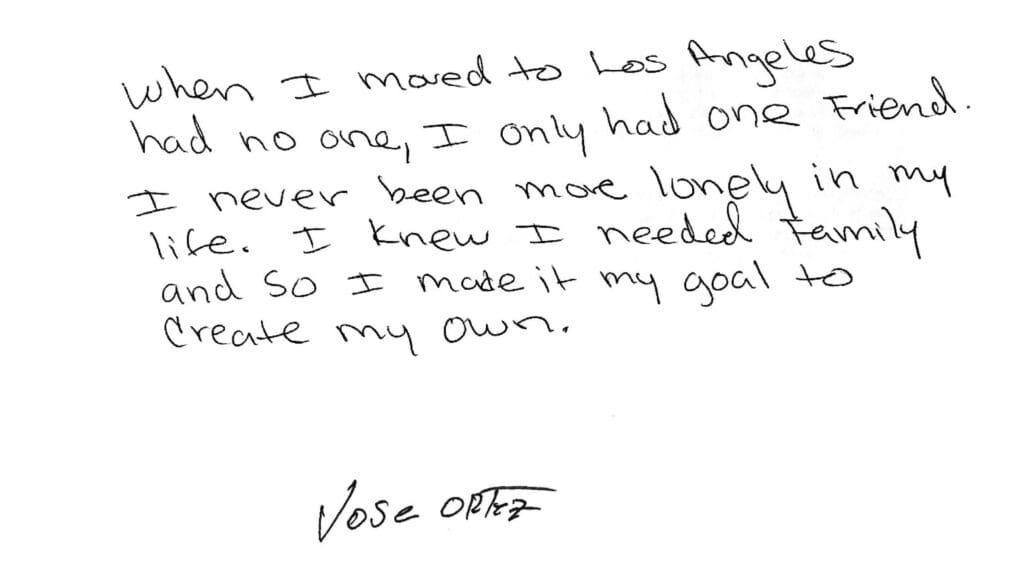 When I moved to Los Angeles
had no one, I only had one Friend.
I never been more lonely in my
life. I knew I needed Family
and so I made it my goal to
Create my own.
Jose ORtiz